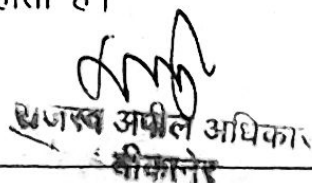 है।
राजस्व अपील अधिका
बीकानेर